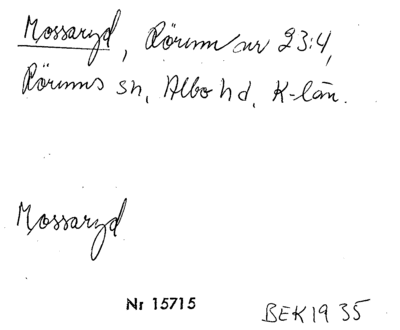 Mossaryd, Rörum nr 23:4,
Rörums sn, Albo hd, K-län.
Mossaryd
Nr 15715
BEK 1935